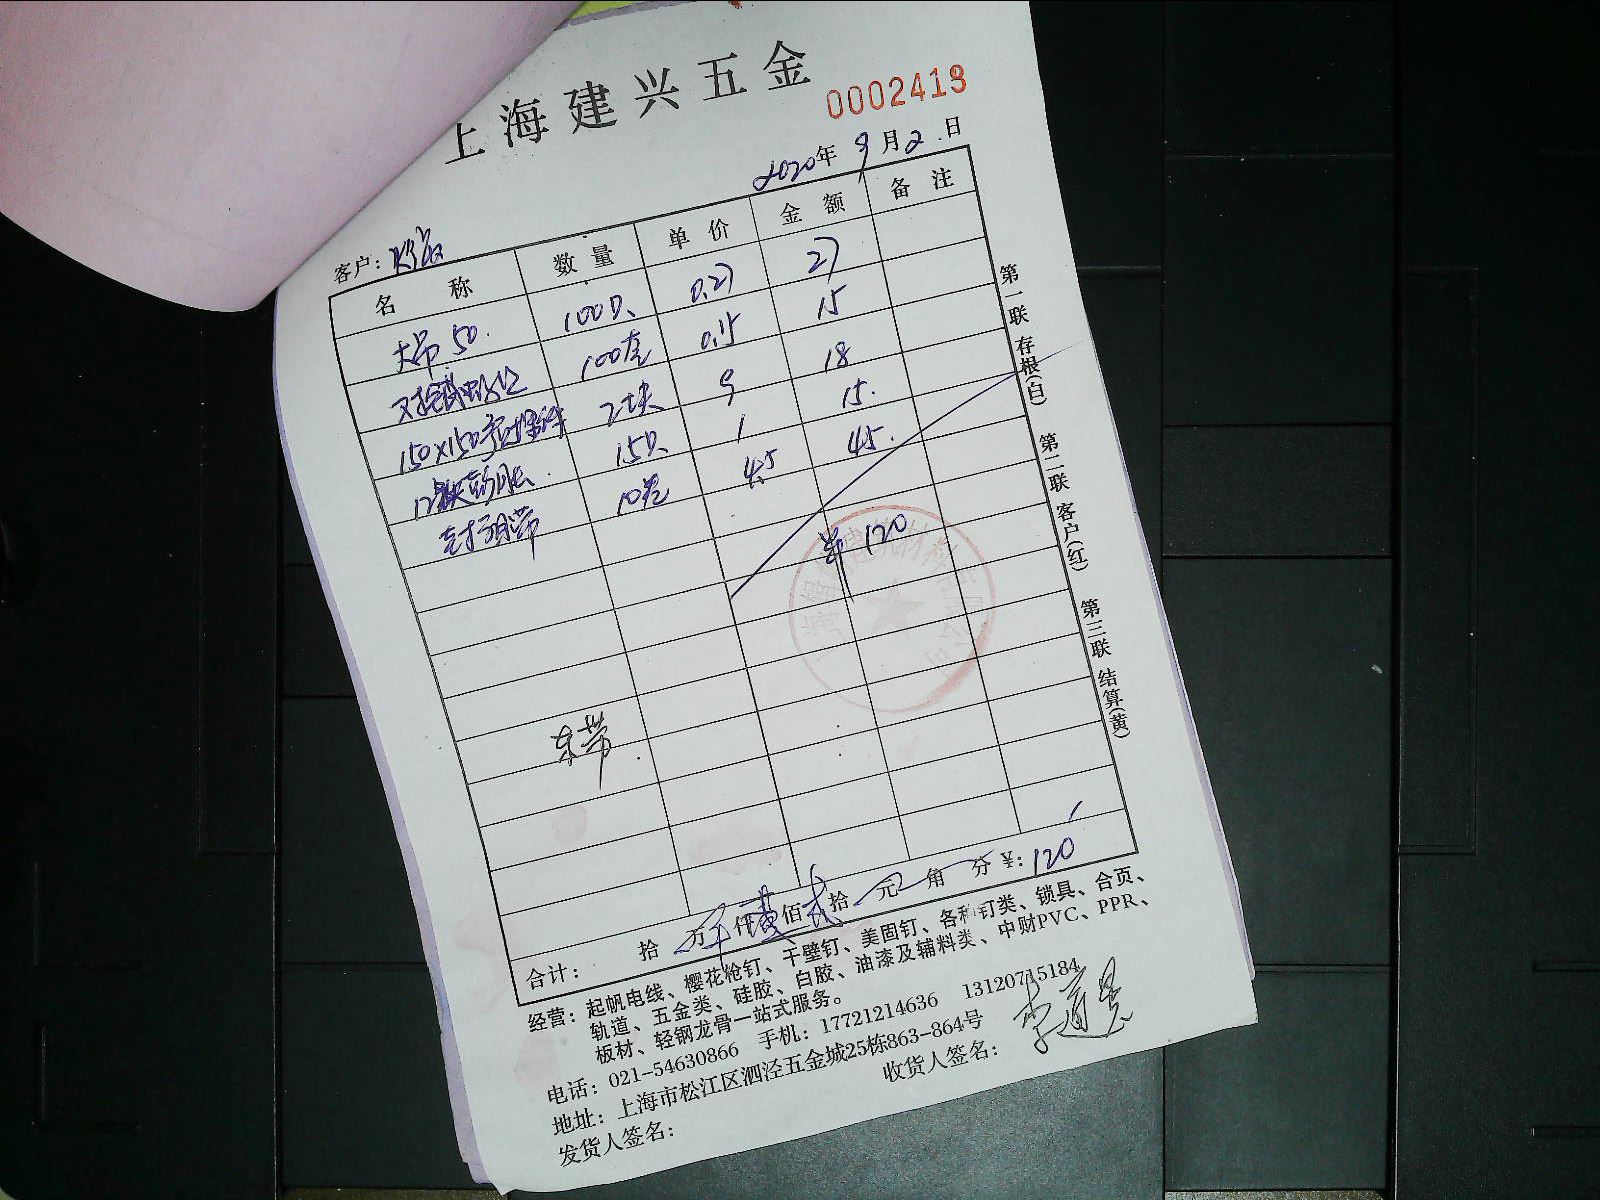 上海建兴五金
0002419
2020年 9月2日
客户：
名称 数量 单价 金额 备注
大吊50. 100只 0.27 27
100套 0.15 15
150×150 2块 9 18
12 15只 1 15.
10卷 4.5 45.
单 120
东带
合计： 拾 万 仟 佰 拾 元 角 分 ¥：120
第一联 存根(白) 第二联 客户(红) 第三联 结算(黄)
经营：起帆电线、樱花枪钉、干壁钉、美固钉、各种钉类、锁具、合页、
轨道、五金类、硅胶、白胶、油漆及辅料类、中财PVC、PPR、
板材、轻钢龙骨一站式服务。
电话：021-54630866 手机：17721214636 13120715184
地址：上海市松江区泗泾五金城25栋863-864号
发货人签名： 收货人签名：